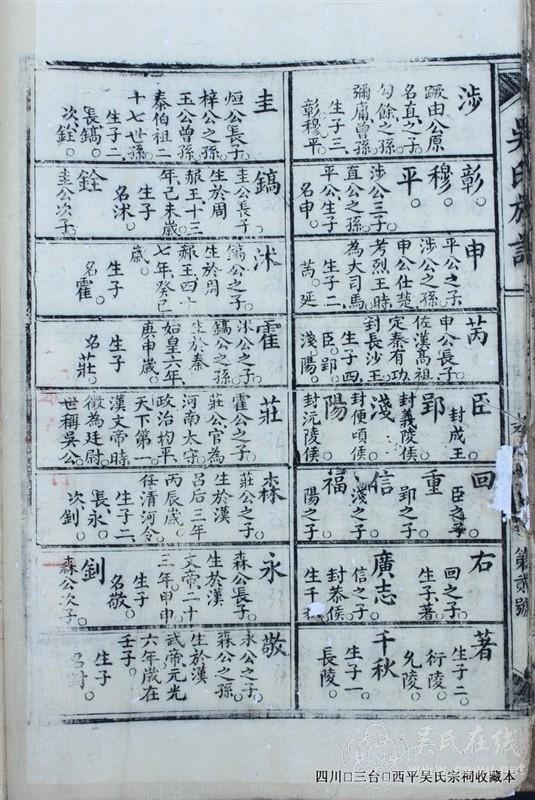 吳氏族譜
第貳號
涉
蹶由公原
名直之子。
句餘之孫。
彌庸曾孫。
生子三、
彰穆平。
彰。穆。平。
涉公三子。
直公之孫。
平公生子。
名申。
申
平公之子。
涉公之孫。
申公仕楚
考烈王時
為大司馬。
生子二。
芮。延
芮
申公長子。
佐漢高祖
定秦有功
封長沙王
生子四、
臣。郢。
淺。陽。
臣
封成王
郢
封義陵侯。
淺
封便頃侯。
陽
封沅陵侯。
回
臣之子。
重
郢之子。
信
淺之子。
福
陽之子。
右
回之子。
生子著。
廣志
信之子。
封恭侯。
生千秋
著
生子二。
衍陵。
允陵。
千秋
生子一。
長陵。
圭
烜公長子。
梓公之孫。
玉公曾孫。
泰伯祖二
十七世孫。
生子二、
長鎬。
次銓。
鎬
圭公長子。
生於周
赧王十三
年己未歲
生子
名沭。
銓
圭公次子。
沭
鎬公之子。
生於周
赧王四十
七年癸巳
歲。
生子
名霍。
霍
沭公之子。
鎬公之孫。
生於秦
始皇六年、
庚申歲。
生子
名莊。
莊
霍公之子。
莊公官為
河南太守
政治均平、
天下第一
漢文帝時
徵為廷尉。
世稱吳公。
森
莊公之子。
生於漢
呂后三年
丙辰歲。
任清河令。
生子二、
長永。
次釗。
永
森公長子。
生於漢
文帝二十
三年甲申。
生子
名敬。
釗
森公次子。
敬
永公之子。
森公之孫。
生於漢
武帝元光
六年歲在
壬子。
生子
吳氏在線
四川□三台□西平吳氏宗祠收藏本